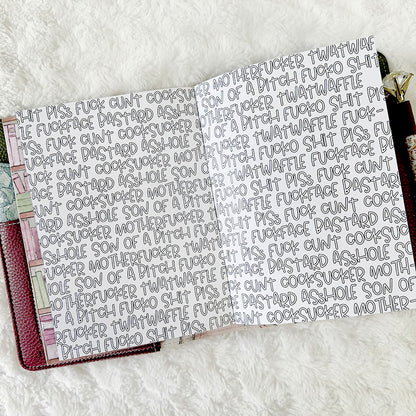 SHIT PISS FUCK CUNT COCKSUCKER
FUCKFACE BASTARD ASSHOLE
PISS FUCK CUNT COCKSUCKER
FUCKFACE BASTARD ASSHOLE SON
FUCK CUNT COCKSUCKER MOTHER-
FACE BASTARD ASSHOLE SON OF
CUNT COCKSUCKER MOTHERFUCKER
BASTARD ASSHOLE SON OF A
COCKSUCKER MOTHERFUCKER
ASSHOLE SON OF A BITCH
COCKSUCKER MOTHERFUCKER
SON OF A BITCH FUCKO
MOTHERFUCKER TWATWAFFLE
SON OF A BITCH FUCKO SHIT PISS
-FUCKER TWATWAFFLE FUCK-
BITCH FUCKO SHIT PISS
MOTHERFUCKER TWATWAFFLE
SON OF A BITCH FUCKO SHIT
-FUCKER TWATWAFFLE FUCK-
OF A BITCH FUCKO SHIT PISS
TWATWAFFLE FUCKFACE
BITCH FUCKO SHIT PISS FUCK
FUCKFACE BASTARD
FUCKO SHIT PISS FUCK CUNT
FUCKFACE BASTARD ASSHOLE
SHIT PISS FUCK CUNT COCKSUCKER
FUCKFACE BASTARD ASSHOLE
PISS FUCK CUNT COCKSUCKER
BASTARD ASSHOLE SON OF